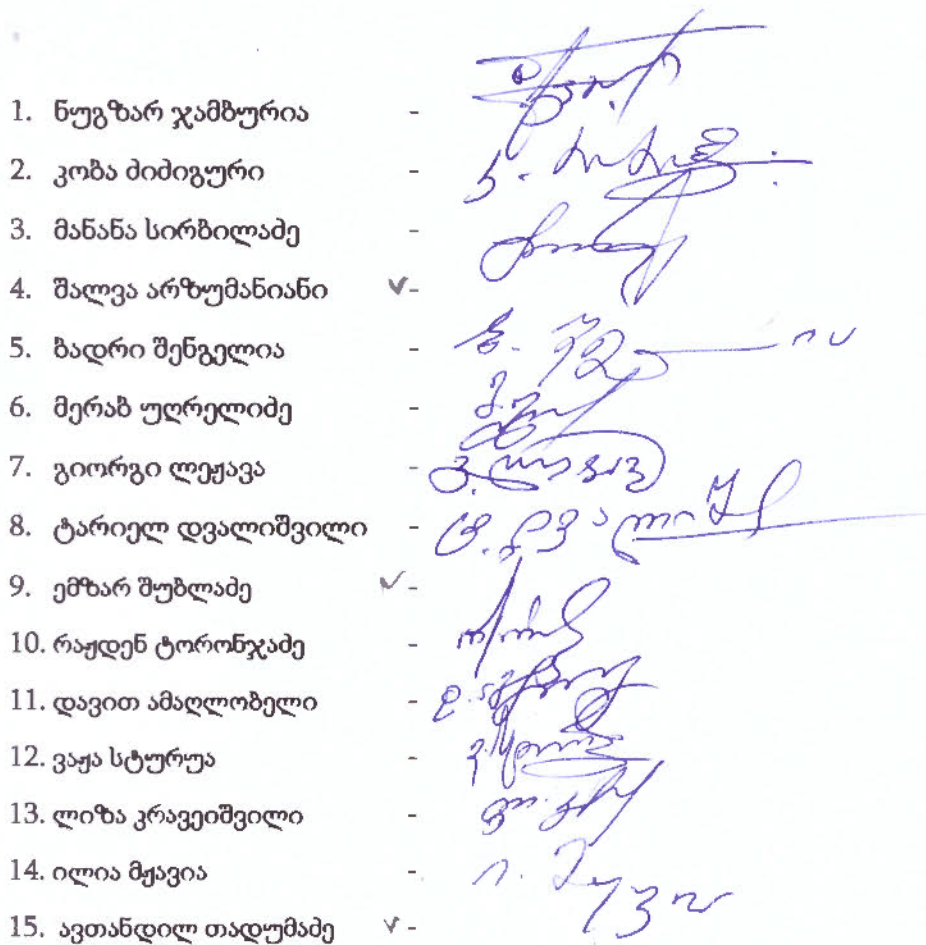 1. ნუგზარ ჯამბურია -
2. კობა ძიძიგური -
3. მანანა სირბილაძე -
4. შალვა არზუმანიანი ✓-
5. ბადრი შენგელია -
6. მერაბ უღრელიძე -
7. გიორგი ლეჟავა -
8. ტარიელ დვალიშვილი -
9. ემზარ შუბლაძე ✓-
10. რაჟდენ ტორონჯაძე -
11. დავით ამაღლობელი -
12. ვაჟა სტურუა -
13. ლიზა კრავეიშვილი -
14. ილია მჟავია -
15. ავთანდილ თადუმაძე ✓-